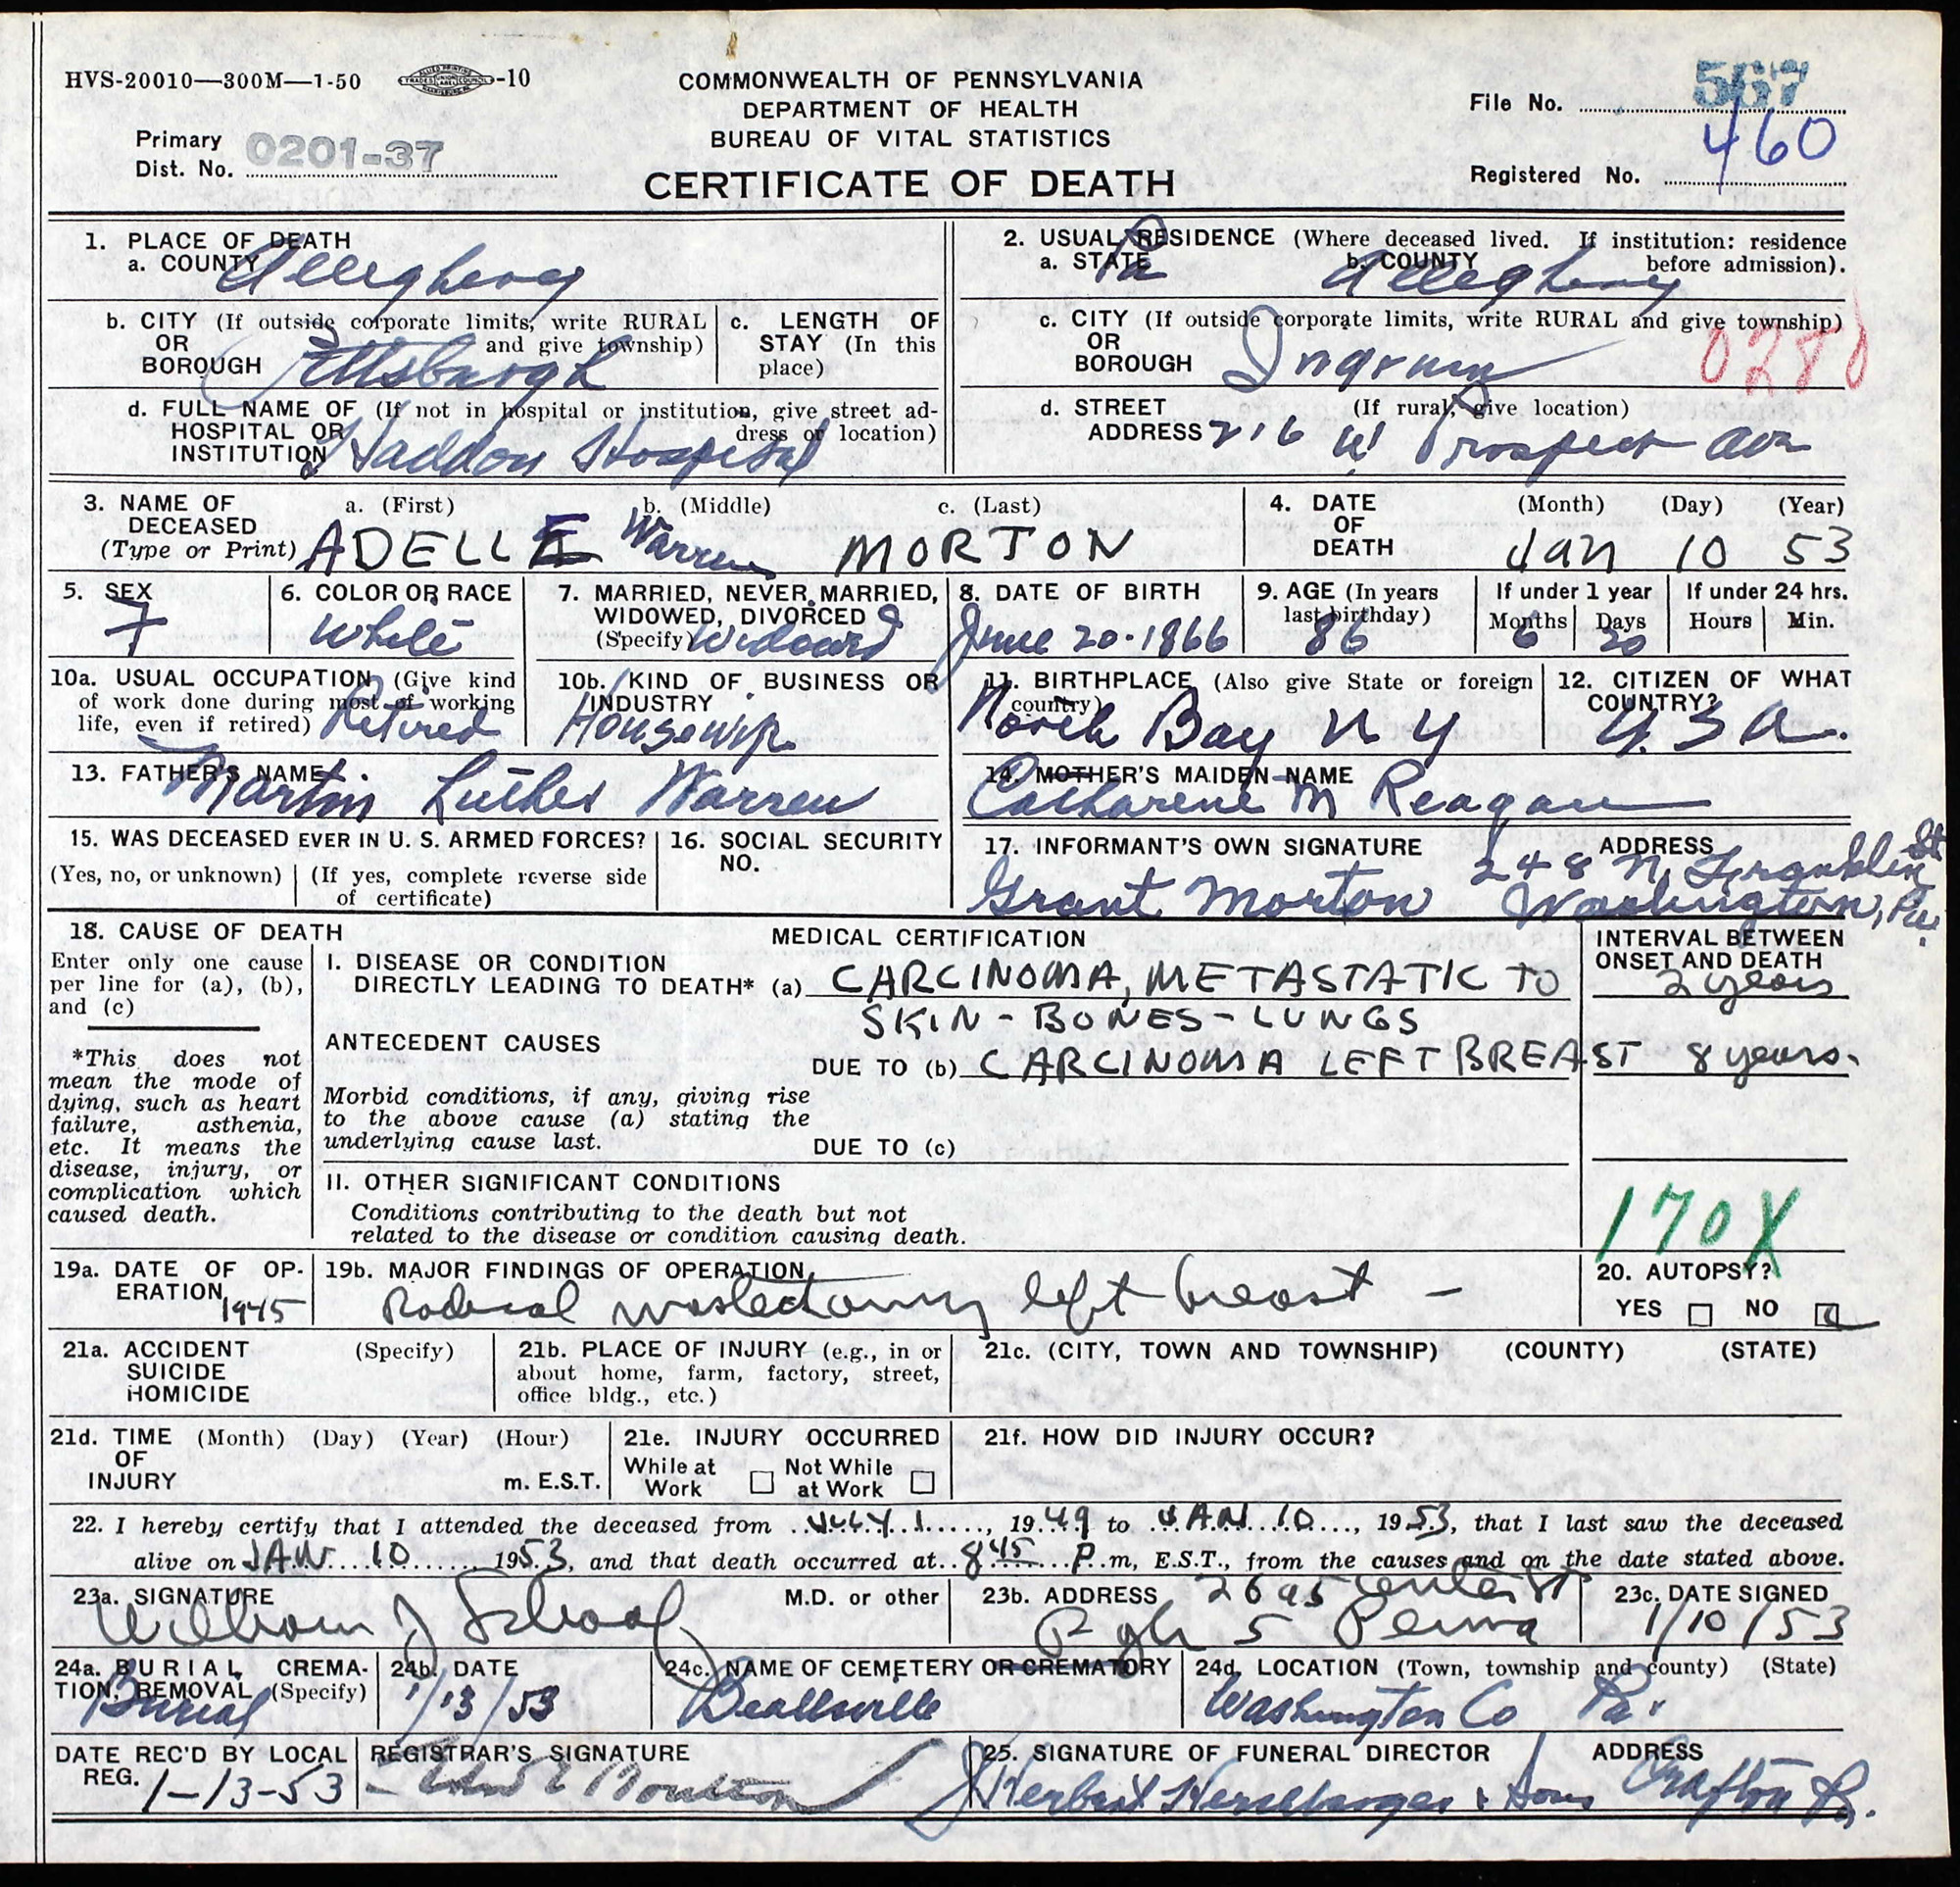 HVS-20010—300M—1-50 -10
COMMONWEALTH OF PENNSYLVANIA
DEPARTMENT OF HEALTH
BUREAU OF VITAL STATISTICS
CERTIFICATE OF DEATH
Primary
Dist. No. 0201-37
File No.
Registered No. 460
1. PLACE OF DEATH
a. COUNTY Allegheny
b. CITY (If outside corporate limits, write RURAL
OR and give township)
BOROUGH Pittsburgh
c. LENGTH OF
STAY (In this
place)
d. FULL NAME OF (If not in hospital or institution, give street ad-
HOSPITAL OR dress or location)
INSTITUTION Haddon Hospital
2. USUAL RESIDENCE (Where deceased lived. If institution: residence
a. STATE Pa b. COUNTY Allegheny before admission).
c. CITY (If outside corporate limits, write RURAL and give township)
OR
BOROUGH Ingram 0280
d. STREET (If rural, give location)
ADDRESS 216 W Prospect Ave
3. NAME OF a. (First) b. (Middle) c. (Last)
DECEASED
(Type or Print) ADELLE Warren MORTON
4. DATE (Month) (Day) (Year)
OF
DEATH Jan 10 53
5. SEX
F
6. COLOR OR RACE
White
7. MARRIED, NEVER MARRIED,
WIDOWED, DIVORCED
(Specify) Widowed
8. DATE OF BIRTH
June 20-1866
9. AGE (In years
last birthday)
86
If under 1 year
Months Days
6 20
If under 24 hrs.
Hours Min.
10a. USUAL OCCUPATION (Give kind
of work done during most of working
life, even if retired) Retired
10b. KIND OF BUSINESS OR
INDUSTRY
Housewife
11. BIRTHPLACE (Also give State or foreign
country)
North Bay N Y
12. CITIZEN OF WHAT
COUNTRY?
U.S.A.
13. FATHER'S NAME
Martin Luther Warren
14. MOTHER'S MAIDEN NAME
Catharene M Reagan
15. WAS DECEASED EVER IN U. S. ARMED FORCES?
(Yes, no, or unknown) (If yes, complete reverse side
of certificate)
16. SOCIAL SECURITY
NO.
17. INFORMANT'S OWN SIGNATURE ADDRESS
248 N. Franklin St
Grant Morton Washington, Pa.
18. CAUSE OF DEATH
Enter only one cause
per line for (a), (b),
and (c)
*This does not
mean the mode of
dying, such as heart
failure, asthenia,
etc. It means the
disease, injury, or
complication which
caused death.
MEDICAL CERTIFICATION
INTERVAL BETWEEN
ONSET AND DEATH
I. DISEASE OR CONDITION
DIRECTLY LEADING TO DEATH* (a) CARCINOMA, METASTATIC TO 2 years
SKIN - BONES - LUNGS
ANTECEDENT CAUSES
DUE TO (b) CARCINOMA LEFT BREAST 8 years.
Morbid conditions, if any, giving rise
to the above cause (a) stating the
underlying cause last.
DUE TO (c)
II. OTHER SIGNIFICANT CONDITIONS
Conditions contributing to the death but not
related to the disease or condition causing death.
170X
19a. DATE OF OP-
ERATION
1945
19b. MAJOR FINDINGS OF OPERATION
Radical mastectomy left breast -
20. AUTOPSY?
YES NO
21a. ACCIDENT (Specify)
SUICIDE
HOMICIDE
21b. PLACE OF INJURY (e.g., in or
about home, farm, factory, street,
office bldg., etc.)
21c. (CITY, TOWN AND TOWNSHIP) (COUNTY) (STATE)
21d. TIME (Month) (Day) (Year) (Hour)
OF
INJURY m. E.S.T.
21e. INJURY OCCURRED
While at Not While
Work at Work
21f. HOW DID INJURY OCCUR?
22. I hereby certify that I attended the deceased from JULY 1, 1949 to JAN 10, 1953, that I last saw the deceased
alive on JAN 10 1953, and that death occurred at 8 45 P.m, E.S.T., from the causes and on the date stated above.
23a. SIGNATURE M.D. or other
William J
23b. ADDRESS 2695 Center St
Pgh 5 Penna
23c. DATE SIGNED
1/10/53
24a. BURIAL, CREMA-
TION, REMOVAL (Specify)
Burial
24b. DATE
1/13/53
24c. NAME OF CEMETERY OR CREMATORY
Beallsville
24d. LOCATION (Town, township and county) (State)
Washington Co Pa.
DATE REC'D BY LOCAL
REG. 1-13-53
REGISTRAR'S SIGNATURE
25. SIGNATURE OF FUNERAL DIRECTOR ADDRESS
& Sons Crafton Pa.